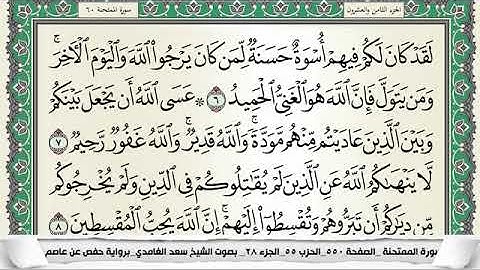 الجزء الثامن والعشرون
سورة الممتحنة ٦٠
لَقَدْ كَانَ لَكُمْ فِيهِمْ أُسْوَةٌ حَسَنَةٌ لِّمَن كَانَ يَرْجُوا۟ ٱللَّهَ وَٱلْيَوْمَ ٱلْأَخِرَ ۚ
وَمَن يَتَوَلَّ فَإِنَّ ٱللَّهَ هُوَ ٱلْغَنِىُّ ٱلْحَمِيدُ ٦ ۞ عَسَى ٱللَّهُ أَن يَجْعَلَ بَيْنَكُمْ
وَبَيْنَ ٱلَّذِينَ عَادَيْتُم مِّنْهُم مَّوَدَّةً ۚ وَٱللَّهُ قَدِيرٌ ۚ وَٱللَّهُ غَفُورٌ رَّحِيمٌ ٧
لَّا يَنْهَىٰكُمُ ٱللَّهُ عَنِ ٱلَّذِينَ لَمْ يُقَـٰتِلُوكُمْ فِى ٱلدِّينِ وَلَمْ يُخْرِجُوكُم
مِّن دِيَـٰرِكُمْ أَن تَبَرُّوهُمْ وَتُقْسِطُوٓا۟ إِلَيْهِمْ ۚ إِنَّ ٱللَّهَ يُحِبُّ ٱلْمُقْسِطِينَ ٨
سورة الممتحنة _الصفحة ٥٥٠_الحزب ٥٥_الجزء ٢٨_ بصوت الشيخ سعد الغامدي_برواية حفص عن عاصم